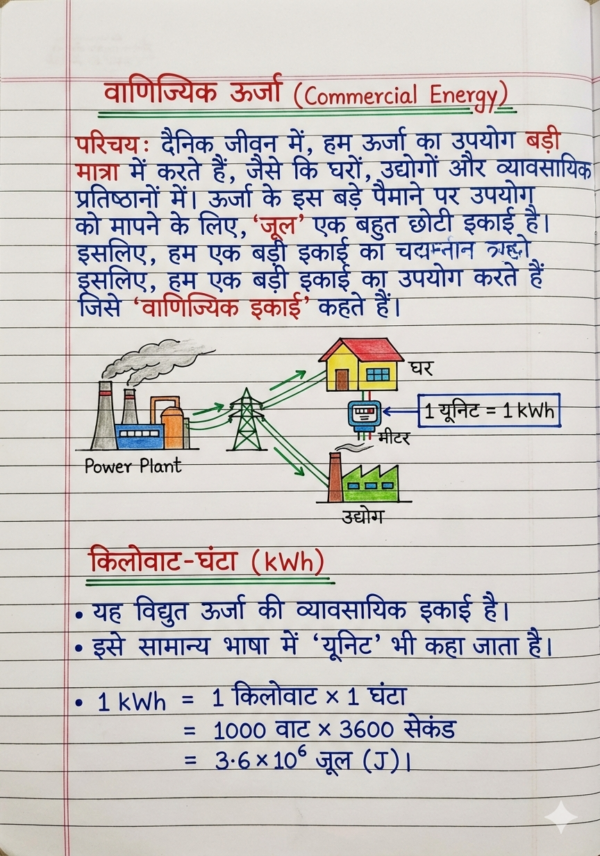 वाणिज्यिक ऊर्जा (Commercial Energy)
परिचय: दैनिक जीवन में, हम ऊर्जा का उपयोग बड़ी
मात्रा में करते हैं, जैसे कि घरों, उद्योगों और व्यावसायिक
प्रतिष्ठानों में। ऊर्जा के इस बड़े पैमाने पर उपयोग
को मापने के लिए, 'जूल' एक बहुत छोटी इकाई है।
इसलिए, हम एक बड़ी इकाई का
इसलिए, हम एक बड़ी इकाई का उपयोग करते हैं
जिसे 'वाणिज्यिक इकाई' कहते हैं।
घर
1 यूनिट = 1 kWh
मीटर
Power Plant
उद्योग
किलोवाट-घंटा (kWh)
• यह विद्युत ऊर्जा की व्यावसायिक इकाई है।
• इसे सामान्य भाषा में 'यूनिट' भी कहा जाता है।
• 1 kWh = 1 किलोवाट × 1 घंटा
= 1000 वाट × 3600 सेकंड
= 3·6 × 10⁶ जूल (J)।